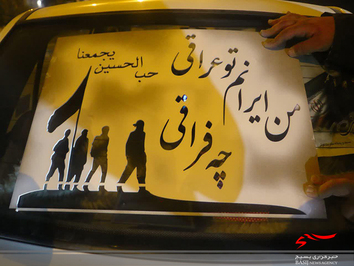 حب الحسین یجمعنا
من ایرانم تو عراقی
چه فراقی
خبرگزاری بسیج
BASIJ NEWS AGENCY